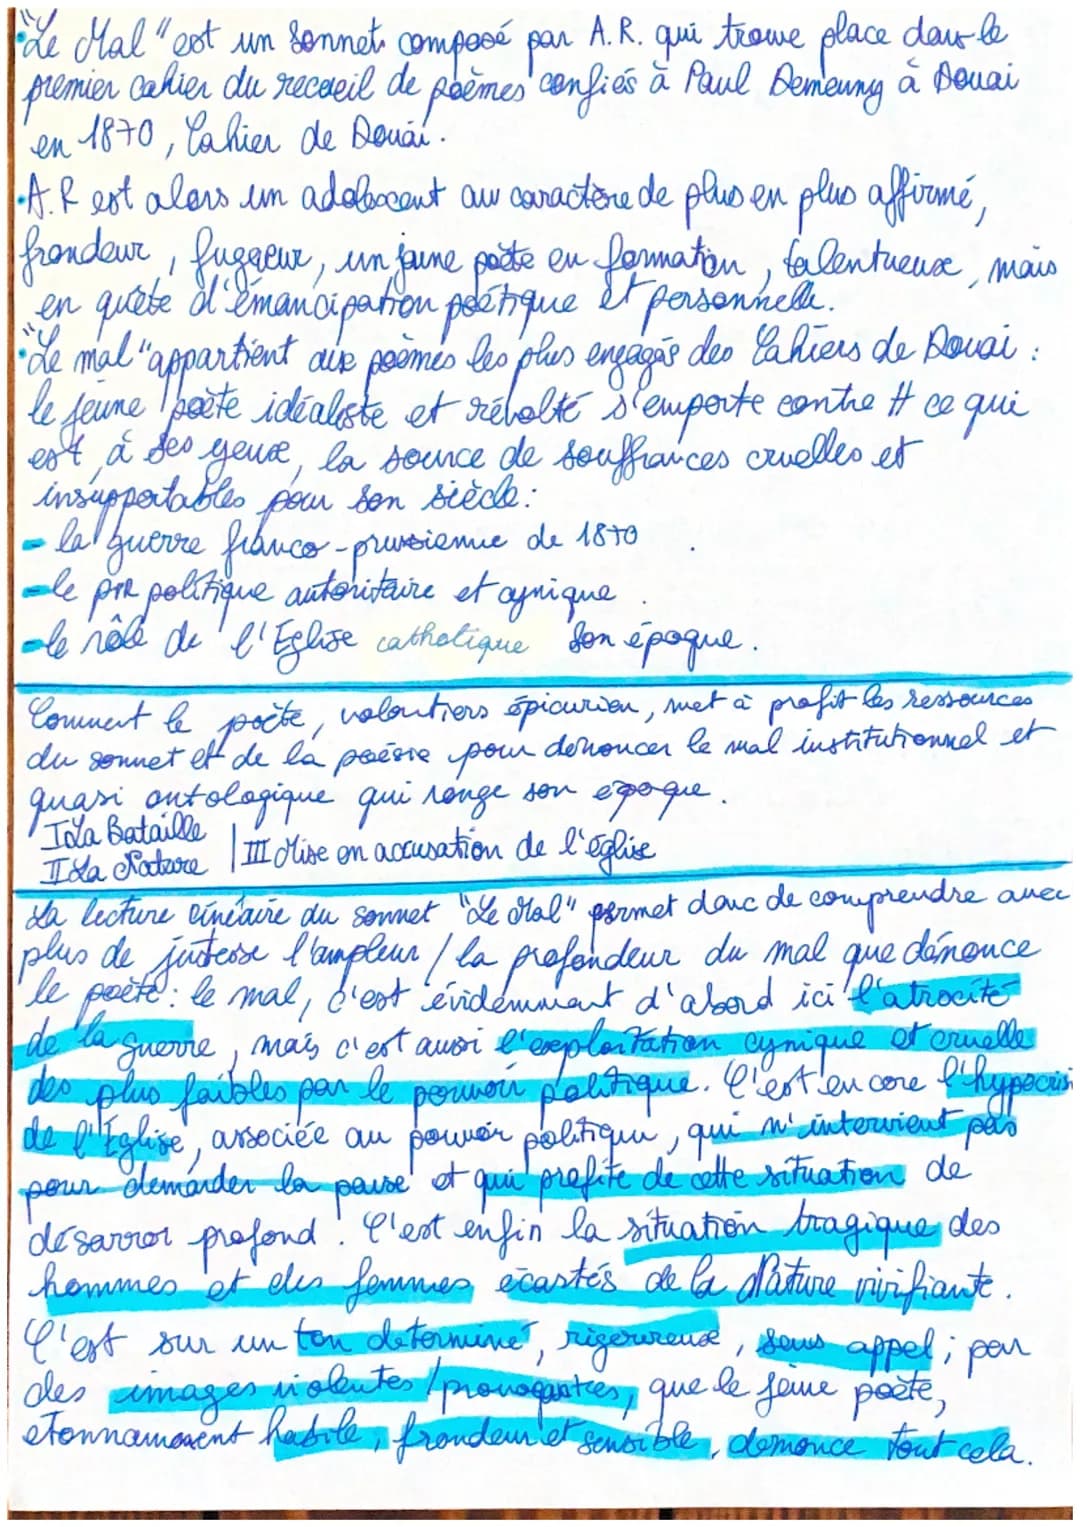 • "Le Mal" est un sonnet composé par A.R. qui trouve place dans le
premier cahier du recueil de poèmes confiés à Paul Demeuny à Douai
en 1870, Cahier de Douai.
• A.R est alors un adolescent au caractère de plus en plus affirmé,
frondeur, fuggeur, un jeune poète en formation, talentueux, mais
en quête d'émancipation poétique et personnelle.
• "Le mal" appartient aux poèmes les plus engagés des Cahiers de Douai :
le jeune poète idéaliste et révolté s'emporte contre tt ce qui
est, à ses yeux, la source de souffrances cruelles et
insupportables pour son siècle :
- la guerre franco-prussienne de 1870.
- le pvr politique autoritaire et cynique.
- le rôle de l'Eglise catholique son époque.
Comment le poète, volontiers épicurien, met à profit les ressources
du sonnet et de la poésie pour dénoncer le mal institutionnel et
quasi ontologique qui ronge son époque.
I La Bataille
II La Nature | III Mise en accusation de l'église
La lecture linéaire du sonnet "Le Mal" permet donc de comprendre avec
plus de justesse l'ampleur / la profondeur du mal que dénonce
le poète : le mal, c'est évidemment d'abord ici l'atrocité
de la guerre, mais c'est aussi l'exploitation cynique et cruelle
des plus faibles par le pouvoir politique. C'est encore l'hypocrisi
de l'Eglise, associée au pouvoir politique, qui n'intervient pas
pour demander la pause et qui profite de cette situation de
désarroi profond. C'est enfin la situation tragique des
hommes et des femmes écartés de la Nature vivifiante.
C'est sur un ton déterminé, rigoureux, sans appel ; par
des images violentes / provoquantes, que le jeune poète,
etonnamment habile, frondeur et sensible, démonce tout cela.